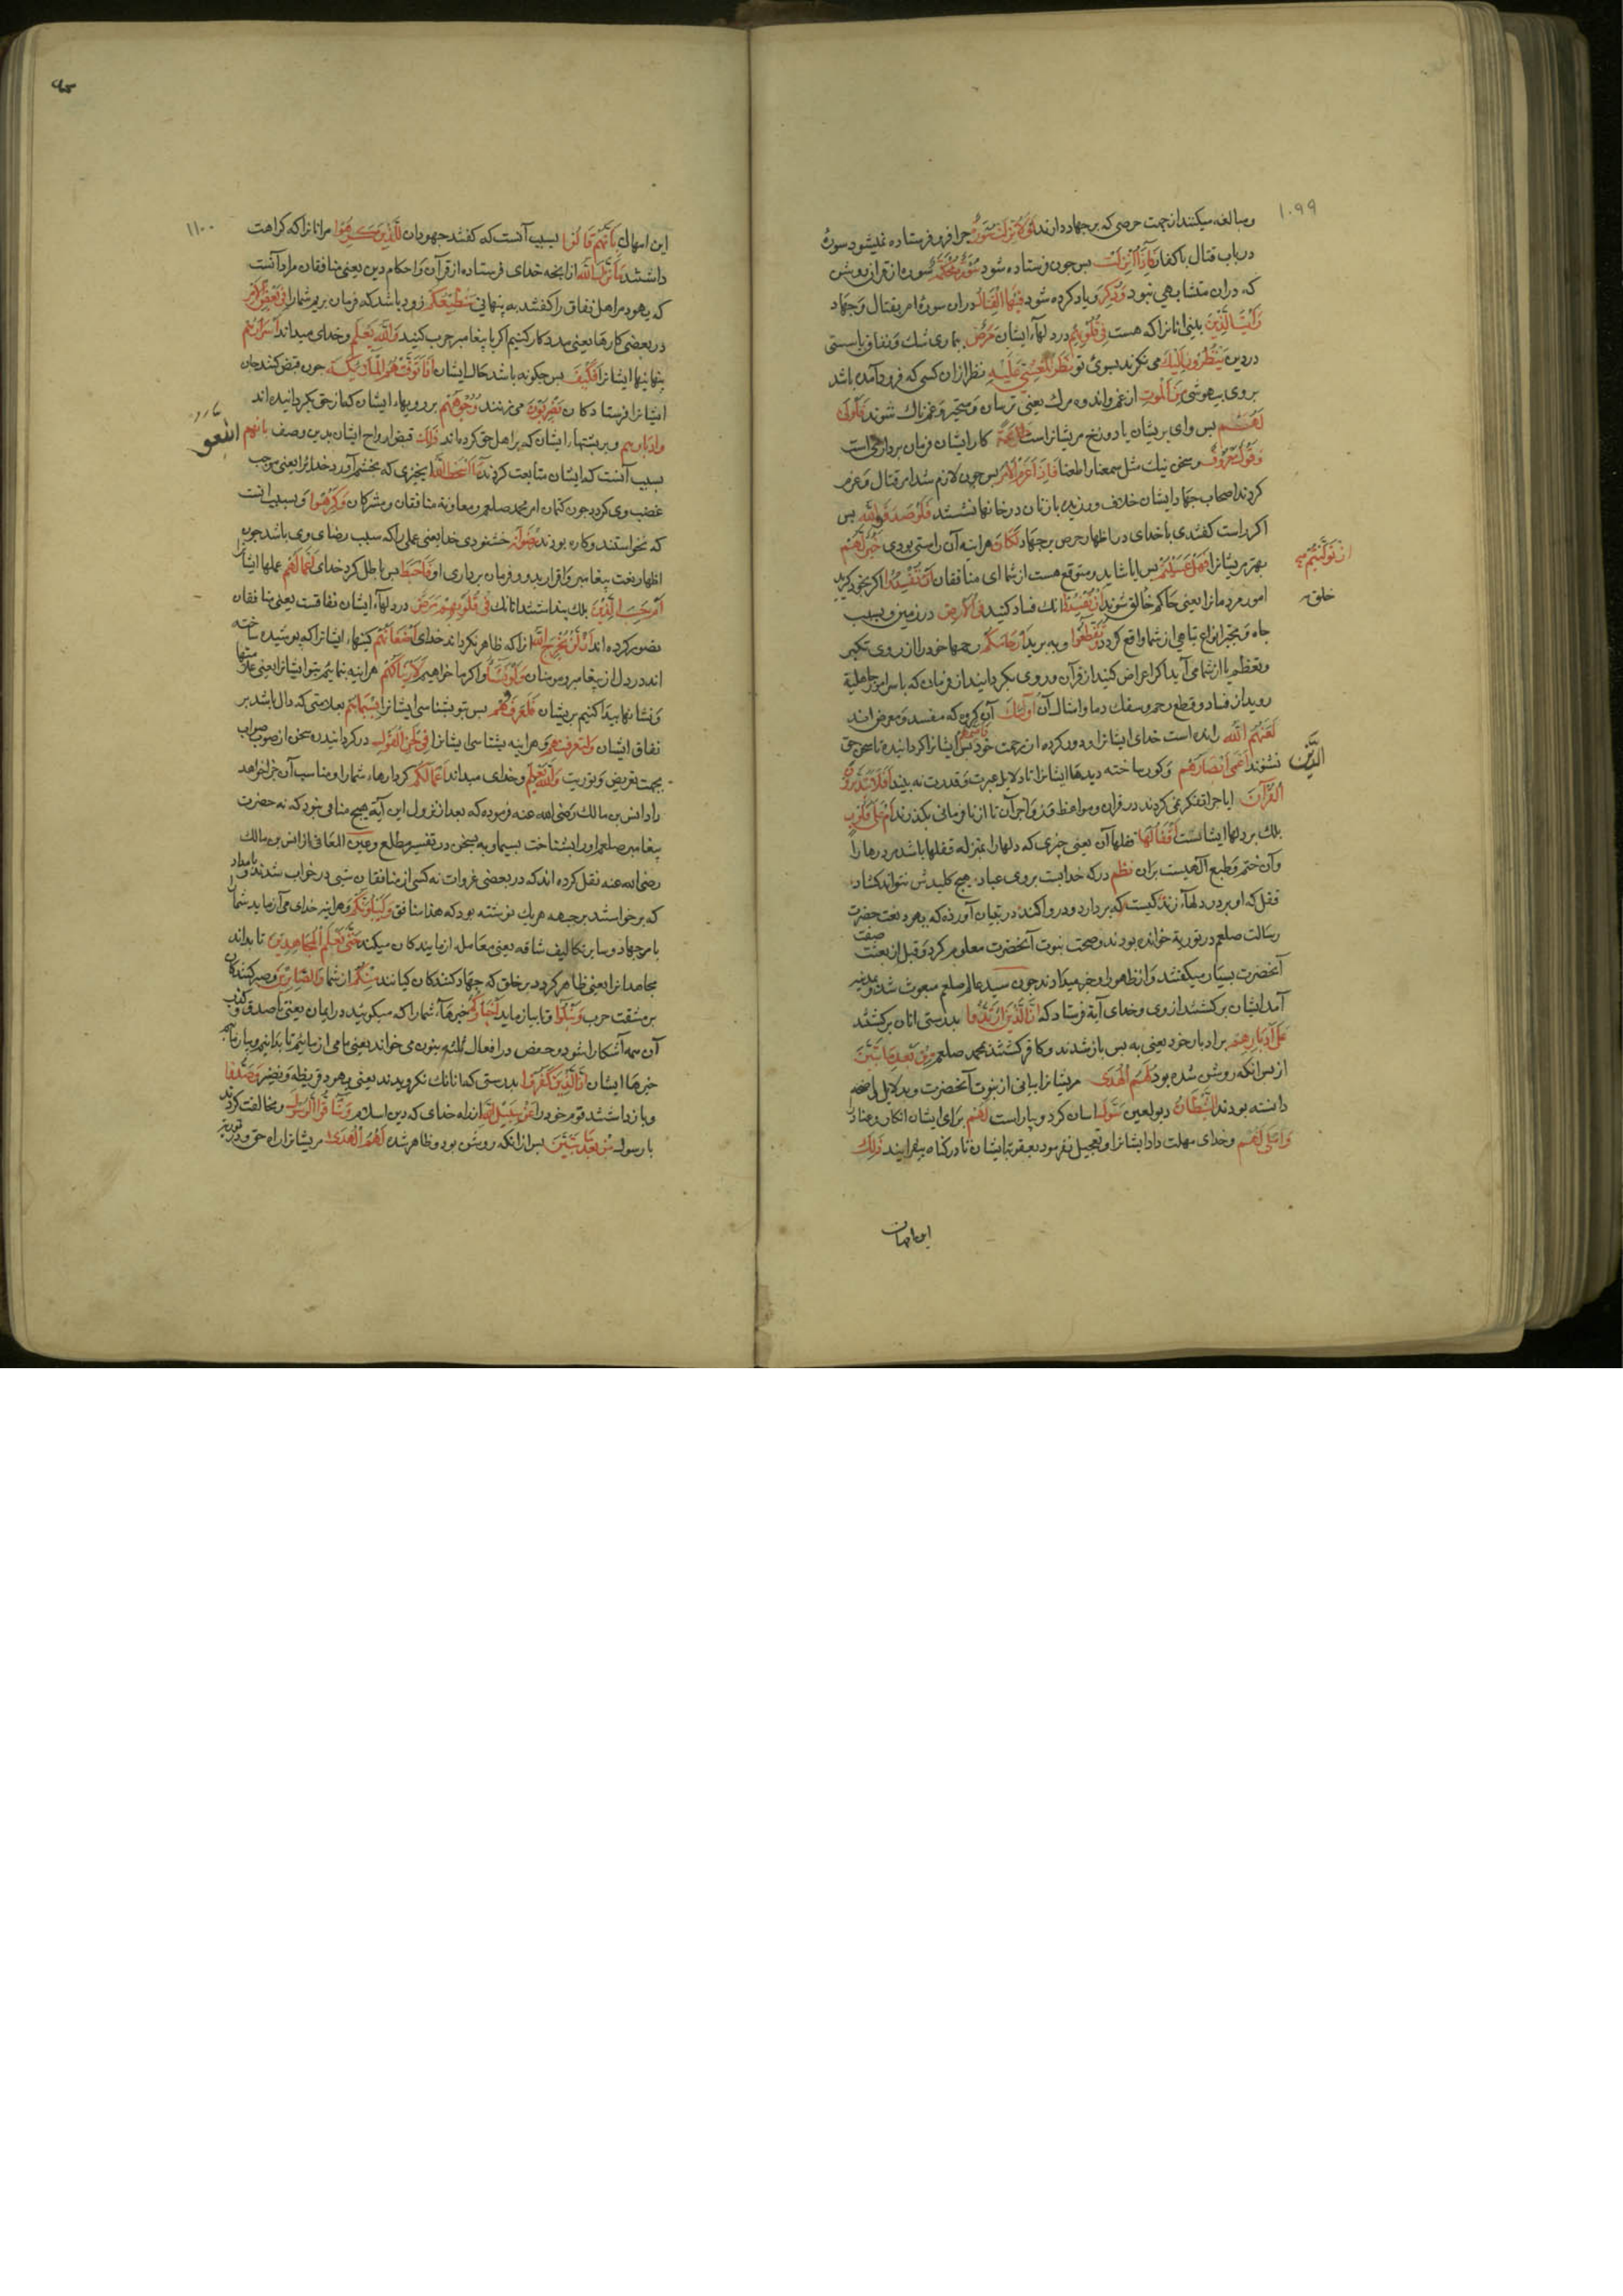 ۱۰۹۹
ومبالغه میکنند از جهت حرصی که بر جهاد دارند لولا نزلت سورة چرا فرو فرستاده نمیشود سورهٔ
در باب قتال با کفار فاذا انزلت پس چون فرستاده شود سورة محکمة سورهٔ از قران روشن
که دران متشابهی نبود وذکر ویاد کرده شود فیها القتال دران سوره امر بقتال وجهاد
رایت الذین بینی انانرا که هست فی قلوبهم در دلهاء ایشان مرض بیماری شک ونفاق یا سستی
در دین ینظرون الیک می نکرند بسوی تو نظر المغشی علیه نظر ازان کسی که فرود آمده باشد
بروی بیهوشی من الموت از غم واندوه مرک یعنی ترسان ومتحیر وغمناک شوند فاولی
لهم پس وای بریشان یا دوزخ مریشانراست طاعة کار ایشان فرمان برداریست
وقول معروف وسخن نیک مثل سمعنا واطعنا فاذا عزم الامر پس چون لازم شد امر قتال وعزم
کردند اصحاب جهاد ایشان خلاف ورزیده با زنان در خانها نشستند فلو صدقوا الله پس
اکر راست کفتندی با خدای در اظهار حرص بر جهاد لکان هراینه آن راستی بودی خیرا لهم
بهتر مریشانرا فهل عسیتم پس ایا شاید ومتوقع هست از شما ای منافقان ان تفسدوا اکر بخود کیرید
ان تولیتم
امور مردمانرا یعنی حاکم خالق شوید ان تفسدوا انک فساد کنید فی الارض در زمین وبسبب
خلق
جاه وتجبر انواع تباهی از شما واقع کردد وتقطعوا وببرید ارحامکم رحمها خود را از روی تکبر
وتعظم یا از شما می آید اکر اعراض کنید از قرآن وروی بکردانید از فرمان که باسر امور جاهلیة
روید از فساد وقطع رحم وسفک دما وامثال آن اولئک آن کروه که مفسد ومعرض اند
الذین
لعنهم الله رانده است خدای ایشانرا ودور کرده از رحمت خود پس ایشانرا کردانیده تا سخن حق
نشنوند اعمی ابصارهم وکور ساخته دیدها ایشانرا تا دلایل عبرت وقدرت نه بینند افلا یتدبرون
القرآن ایا چرا تفکر نمی کردند در قران ومواعظ وزواجر آن تا از نافرمانی بکذرند ام علی قلوب
بلک بر دلها ایشانست اقفالها قفلها آن یعنی چیزی که دلها را بمنزله قفلها باشد مر درها را
وآن ختم وطبع الهیست بران نظم در که خدا بست بروی عباد هیچ کلیدش نتواند کشاد
قفل که او بر در دلها زند کیست که بردارد ودر وا کند در تبیان آورده که یهود نعت حضرت
رسالت صلعم در توریة خوانده بودند وصحت نبوت آنحضرت معلوم کرد وقبل از بعثت صفت
آنحضرت بسیار میکفتند واز ظهور او خبر میدادند چون سید عالم صلعم مبعوث شد وبمدینه
آمد ایشان برکشتند از وی وخدای آیة فرستاد که ان الذین ارتدوا بدرستی انان برکشتند
علی ادبارهم بر ادبار خود یعنی به پس باز شدند وکافر کشتند بمحمد صلعم من بعد ما تبین
از پس انکه روشن شده بود لهم الهدی مریشانرا بیانی از نبوت آنحضرت وبدلایل واضحه
دانسته بودند الشیطان دیو لعین سول اسان کرد وبیاراست لهم برای ایشان انکار وعناد
واملی لهم وخدای مهلت داد ایشانرا وتعجیل نفرمود بعقوبة ایشان تا در کناه بیفزایند ذلک
این امهال
۱۱۰۰
این امهال بانهم قالوا بسبب آنست که کفتند جهودان للذین کرهوا مر انانرا که کراهت
داشتند ما نزل الله ازانچه خدای فرستاده از قرآن واحکام دین یعنی منافقان مراد آنست
که یهود مر اهل نفاق را کفتند به پنهانی سنطیعکم زود باشد که فرمان بریم شما را فی بعض الامر
در بعضی کارها یعنی مدد کار کنیم اکر با پیغامبر حرب کنید والله یعلم وخدای میداند اسرارهم
پنهانیها ایشانرا فکیف پس چکونه باشد حال ایشان اذا توفتهم الملائکة چون قبض کنند جان
ایشانرا فرستادکان یضربون می زنند وجوههم بر رویهاء ایشان که از حق بکردانیده اند
وادبارهم وبر پشتهاء ایشان که بر اهل حق کرده اند ذلک قبض ارواح ایشان بدین وصف بانهم
اتبعوا
بسبب آنست که ایشان متابعت کردند ما اسخط الله چیزی که بخشم آورد خدایرا یعنی موجب
غضب وی کردد چون کتمان امر محمد صلعم ومعاونة منافقان ومشرکان وکرهوا وبسبب انست
که نخواستند وکاره بودند رضوانه خشنودی خدا یعنی عملی را که سبب رضای وی باشد چون
اظهار نعت پیغامبر واقرار بدو وفرمان برداری او فاحبط پس باطل کرد خدای اعمالهم عملها ایشان
ام حسب الذین بلک پنداشتند انانک فی قلوبهم مرض در دلهاء ایشان نفاقست یعنی منافقان
تصور کرده اند ان لن یخرج الله انرا که ظاهر نکرداند خدای اضغانهم کینهاء ایشانرا که پوشیده ساخته
اند در دل از پیغامبر ومومنان ولو نشاء واکر ما خواهیم لاریناکهم هراینه بنمائیم بتو ایشانرا یعنی علامتها
ونشانها پیدا کنیم بریشان فلعرفتهم پس تو بشناسی ایشانرا بسیماهم بعلامتی که دال باشد بر
نفاق ایشان ولتعرفنهم وهراینه بشناسی ایشانرا فی لحن القول در کردانیدن سخن از صوب صواب
بجهت تعریض وتوریت والله یعلم وخدای میداند اعمالکم کردارهاء شما را ومناسب آن جزا خواهد
داد انس بن مالک رضی الله عنه فرموده که بعد از نزول این آیة هیچ منافق نبود که نه حضرت
پیغامبر صلعم اورا بشناخت بسیما وبه سخن در تفسیر مطلع وعین المعانی از انس بن مالک
رضی الله عنه نقل کرده اند که در بعضی غزوات نه کس از منافقان شبی در خواب شدند بامداد
که برخواستند بر جبهه هریک نوشته بود که هذا منافق ولنبلونکم وهراینه خدای می آزماید شما را
بامر جهاد وسایر تکالیف شاقه یعنی معامله ازمایندکان میکند حتی نعلم المجاهدین تا بداند
مجاهدانرا یعنی ظاهر کردد بر خلق که جهاد کنندکان کیانند منکم از شما والصابرین وصبر کنندکان
بر مشقت حرب ونبلوا وتا بیازماید اخبارکم خبرهاء شما را که میکویند در ایمان یعنی تا صدق وکذب
آن همه آشکارا شود وحفص در افعال ثلثه بنون می خواند یعنی ما می ازمائیم تا بدانیم وبیازمائیم
خبرها ایشان ان الذین کفروا بدرستی که انانک نکرویدند یعنی یهود قریظه ونضیر وصدوا
وباز داشتند قوم خود را عن سبیل الله از راه خدای که دین اسلام وشاقوا الرسول ومخالفت کردند
با رسول من بعد ما تبین پس ازانکه روشن بود وظاهر شد لهم الهدی مریشانرا راه حق ودر توریة